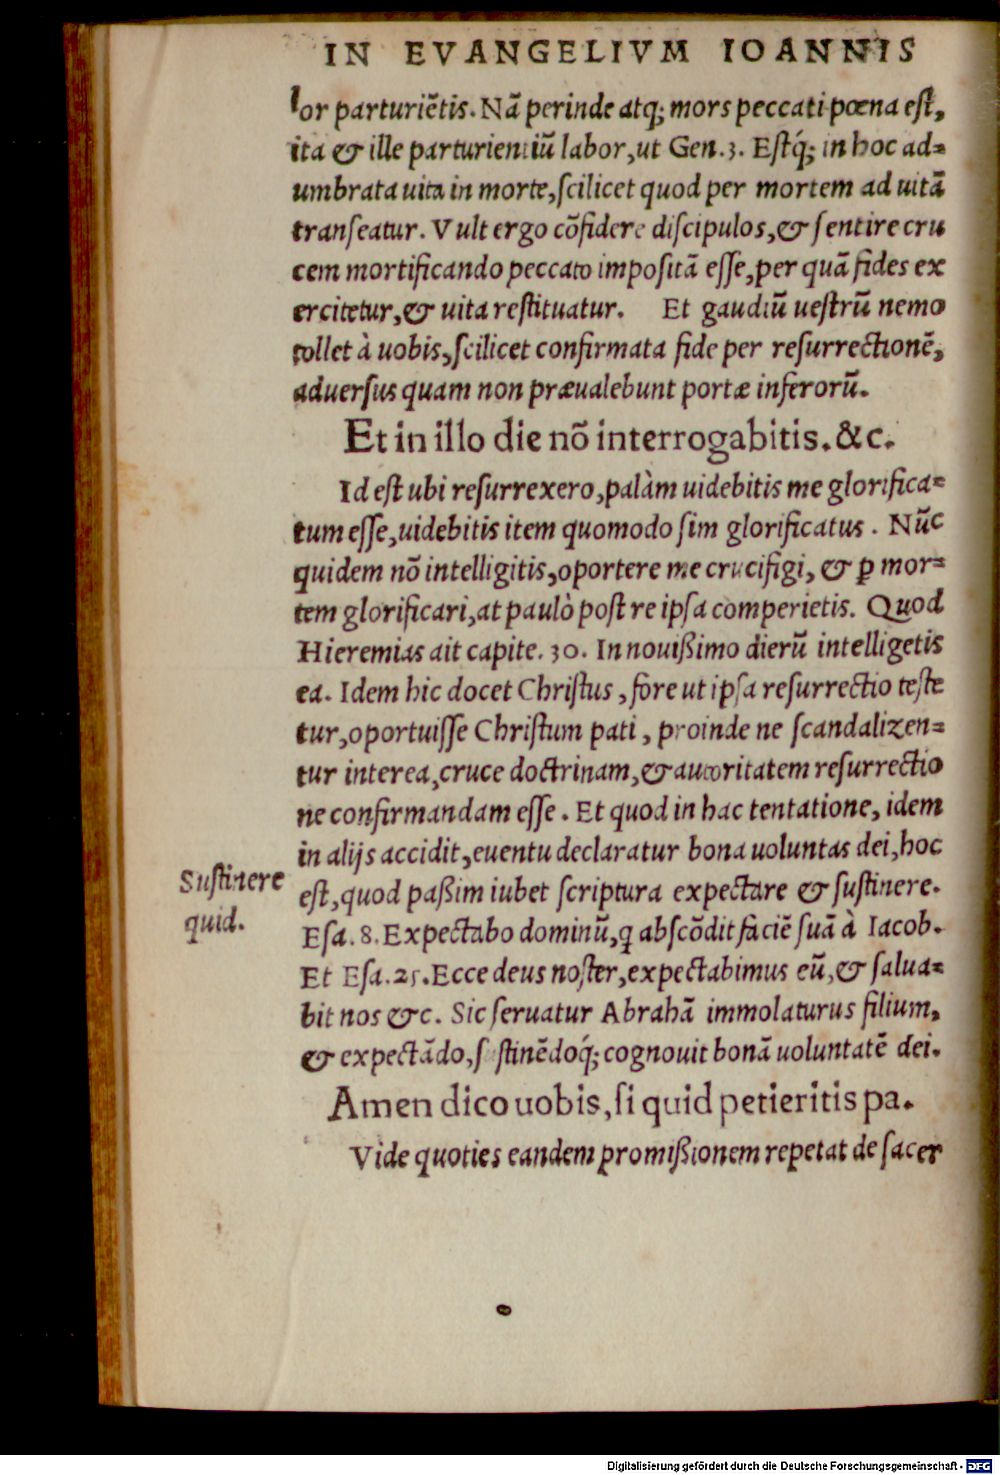 IN EVANGELIVM IOANNIS
lor parturiētis. Nā perinde atq; mors peccati pœna est,
ita & ille parturientiū labor, ut Gen. 3. Estq́; in hoc ad-
umbrata uita in morte, scilicet quod per mortem ad uitā
transeatur. Vult ergo cōfidere discipulos, & sentire cru
cem mortificando peccato impositā esse, per quā fides ex
ercitetur, & uita restituatur. Et gaudiū uestrū nemo
tollet à uobis, scilicet confirmata fide per resurrectionē,
aduersus quam non præualebunt portæ inferorū.
Et in illo die nō interrogabitis. &c.
Id est ubi resurrexero, palàm uidebitis me glorifica-
tum esse, uidebitis item quomodo sim glorificatus. Nūc
quidem nō intelligitis, oportere me crucifigi, & ꝑ mor-
tem glorificari, at paulò post re ipsa comperietis. Quod
Hieremias ait capite. 30. In nouißimo dierū intelligetis
ea. Idem hic docet Christus, fore ut ipsa resurrectio teste
tur, oportuisse Christum pati, proinde ne scandalizen-
tur interea, cruce doctrinam, & autoritatem resurrectio
ne confirmandam esse. Et quod in hac tentatione, idem
in alijs accidit, euentu declaratur bona uoluntas dei, hoc
Sustinere quid.
est, quod paßim iubet scriptura expectare & sustinere.
Esa. 8. Expectabo dominū, q abscōdit faciē suā à Iacob.
Et Esa. 25. Ecce deus noster, expectabimus eū, & salua-
bit nos &c. Sic seruatur Abrahā immolaturus filium,
& expectādo, sustinēdoq́; cognouit bonā uoluntatē dei.
Amen dico uobis, si quid petieritis pa.
Vide quoties eandem promißionem repetat de sacer
Digitalisierung gefördert durch die Deutsche Forschungsgemeinschaft - DFG